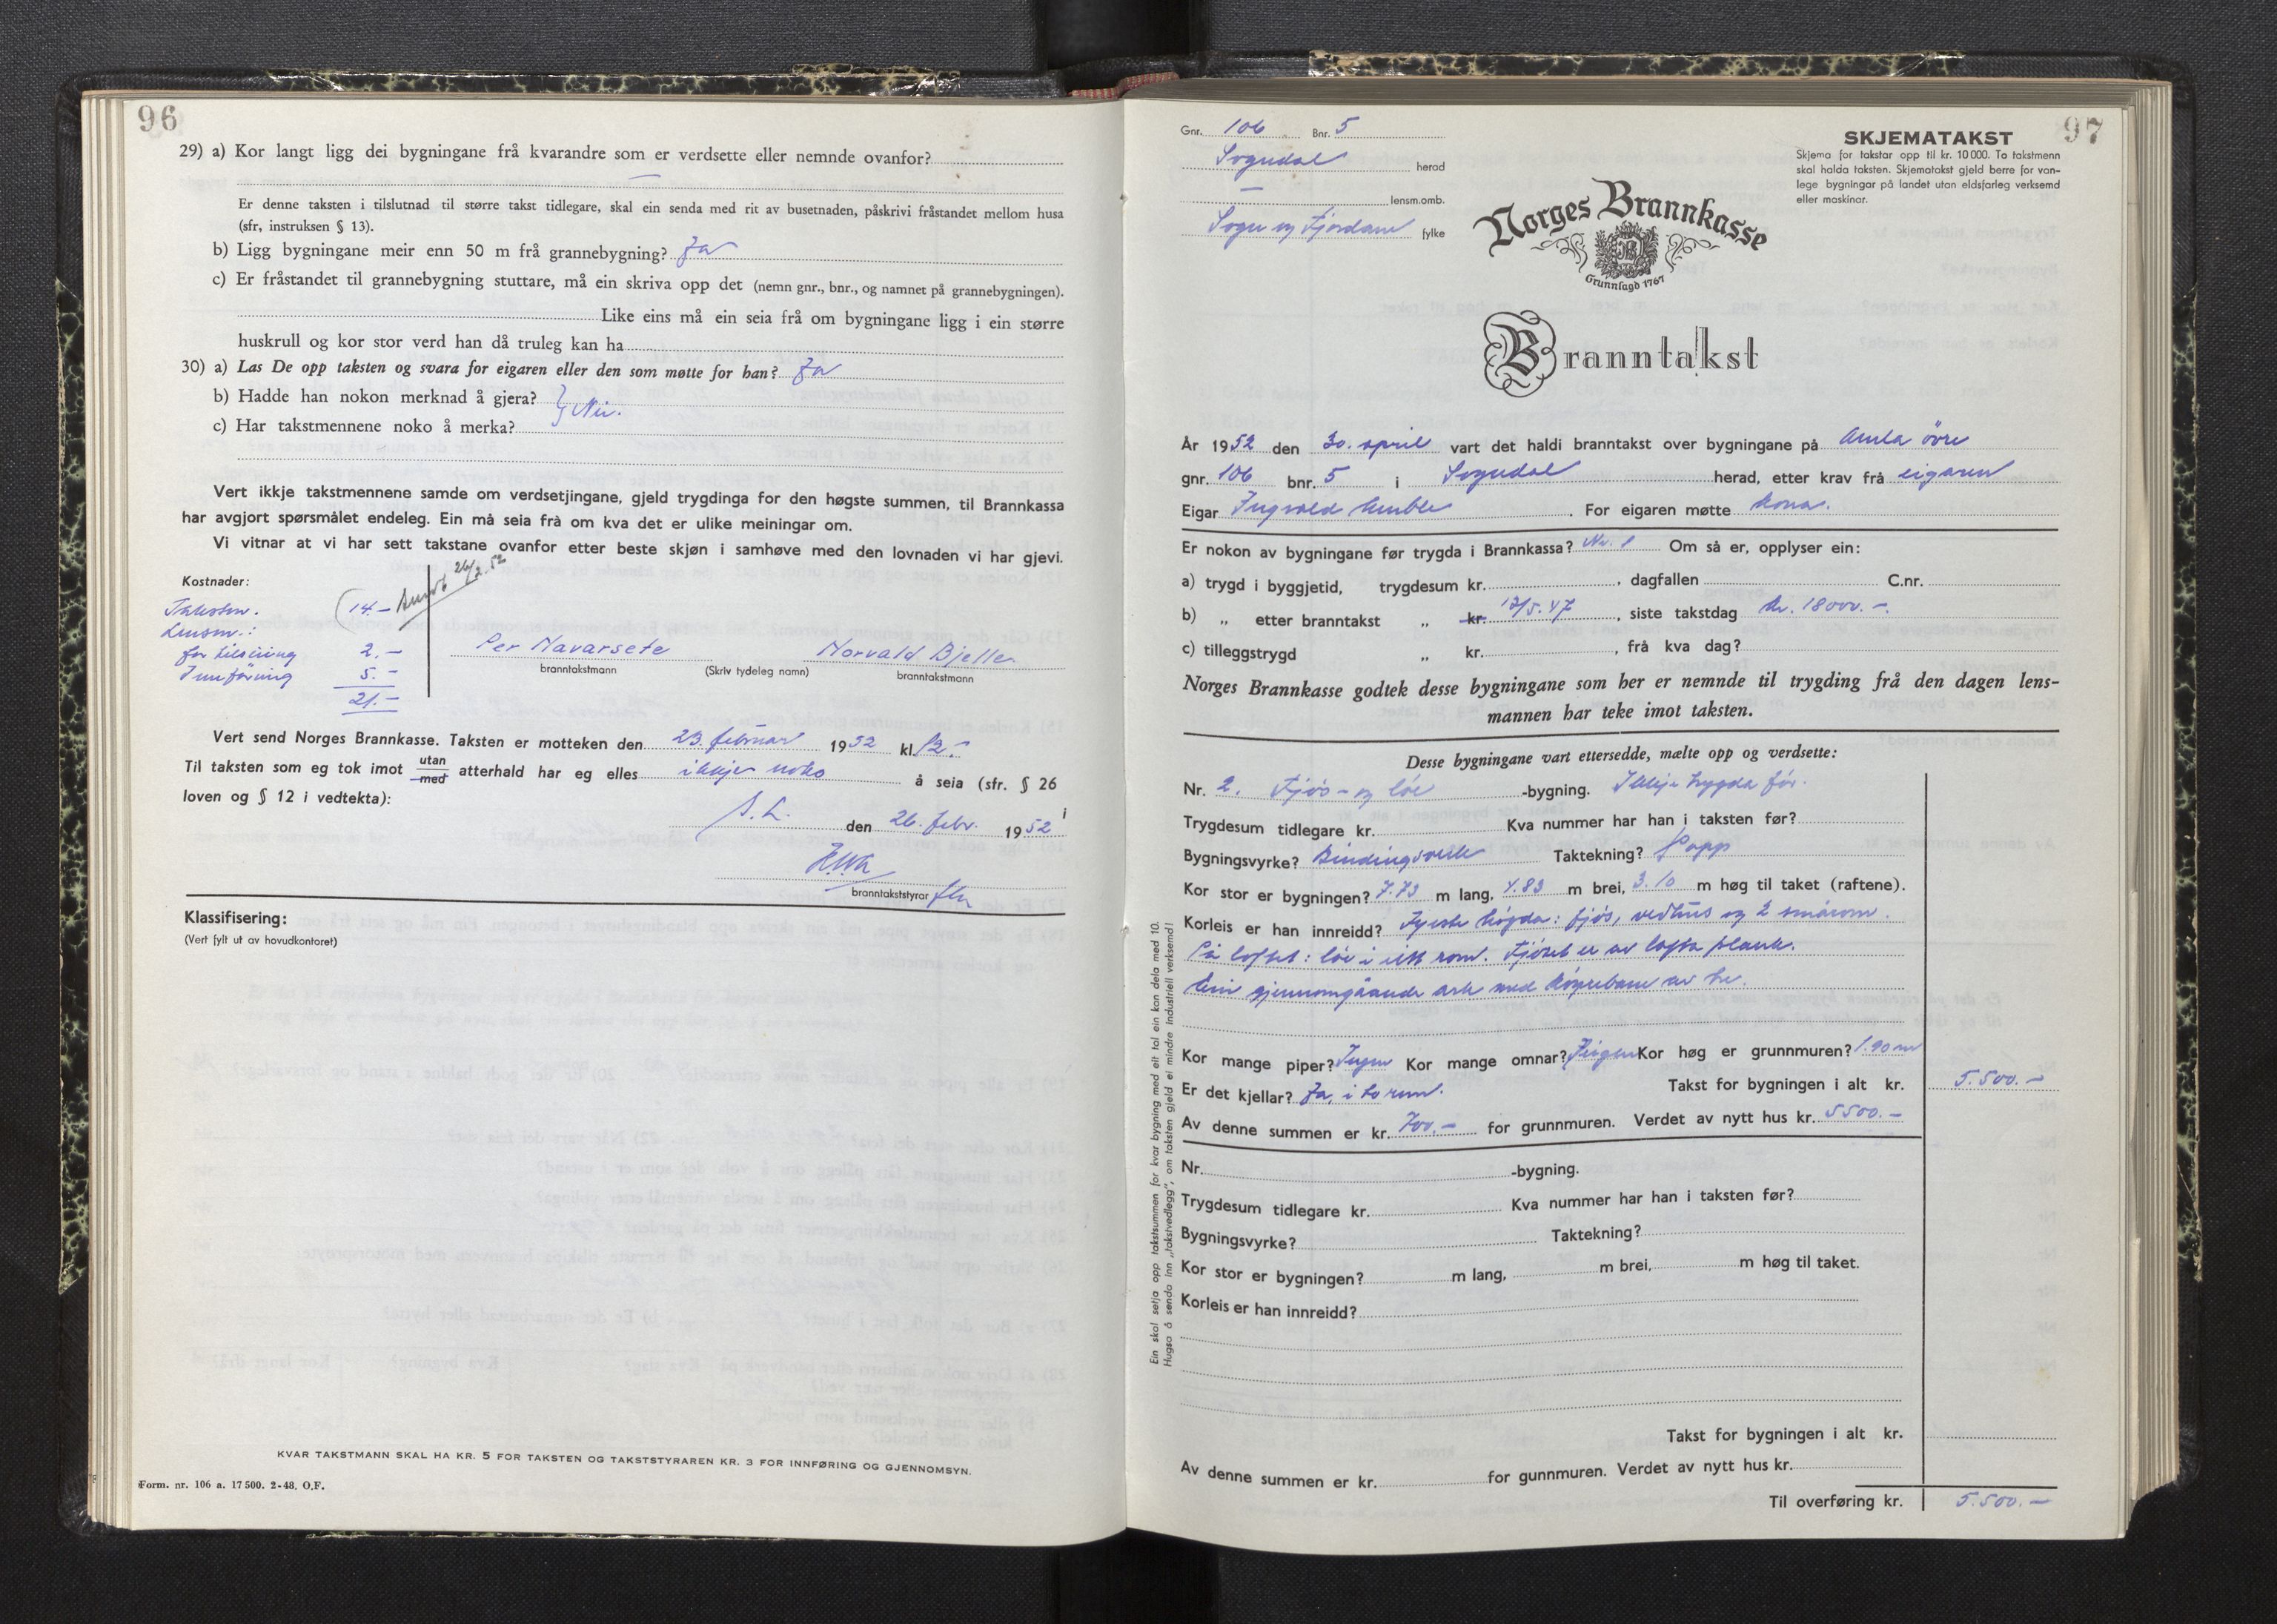 96
29) a) Kor langt ligg dei bygningane frå kvarandre som er verdsette eller nemnde ovanfor?
—
Er denne taksten i tilslutnad til større takst tidlegare, skal ein senda med rit av busetnaden, påskrivi fråstandet mellom husa
(sfr, instruksen § 13).
b) Ligg bygningane meir enn 50 m frå grannebygning? Ja
c) Er fråstandet til grannebygning stuttare, må ein skriva opp det (nemn gnr., bnr., og namnet på grannebygningen).
Like eins må ein seia frå om bygningane ligg i ein større
huskrull og kor stor verd han då truleg kan ha
30) a) Las De opp taksten og svara for eigaren eller den som møtte for han? Ja
b) Hadde han nokon merknad å gjera?
} Nei.
c) Har takstmennene noko å merka?
Vert ikkje takstmennene samde om verdsetjingane, gjeld trygdinga for den høgste summen, til Brannkassa
har avgjort spørsmålet endeleg. Ein må seia frå om kva det er ulike meiningar om.
Vi vitnar at vi har sett takstane ovanfor etter beste skjøn i samhøve med den lovnaden vi har gjevi.
Kostnader:
Takstm. 14.- 26/2.52
Lensm.:
for tilsining 2.-
Innføring 5.-
21.-
Per Navarsete Norvald Bjelle
branntakstmann (Skriv tydeleg namn) branntakstmann
Vert send Norges Brannkasse. Taksten er motteken den 23. februar 1952 kl. 12.-
Til taksten som eg tok imot utan med atterhald har eg elles ikkje noko å seia (sfr. § 26 i
loven og § 12 i vedtekta):
S. L. den 26. febr. 1952
branntakststyrar
Klassifisering:
(Vert fylt ut av hovudkontoret)
KVAR TAKSTMANN SKAL HA KR. 5 FOR TAKSTEN OG TAKSTSTYRAREN KR. 3 FOR INNFØRING OG GJENNOMSYN.
Form. nr. 106 a. 17 500. 2-48. O.F.
97
Gnr. 106 Bnr. 5
Sogndal herad
— lensm.omb.
Sogn og Fjordane fylke
SKJEMATAKST
Skjema for takstar opp til kr. 10 000. To takstmenn
skal halda taksten. Skjematakst gjeld berre for van-
lege bygningar på landet utan eldsfarleg verksemd
eller maskinar.
Norges Brannkasse
NB
Grunnlagd 1767
Branntakst
År 1952 den 30. april vart det haldi branntakst over bygningane på Amla övre
gnr. 106 bnr. 5 i Sogndal herad, etter krav frå eigaren
Eigar Ingvald Amble. For eigaren møtte kona.
Er nokon av bygningane før trygda i Brannkassa? Nr. 1 Om så er, opplyser ein:
a) trygd i byggjetid, trygdesum kr. , dagfallen C.nr.
b) „ etter branntakst „ kr. 12/5.47, siste takstdag kr. 18000.-.
c) tilleggstrygd „ kr. , frå kva dag?
Norges Brannkasse godtek desse bygningane som her er nemnde til trygding frå den dagen lens-
mannen har teke imot taksten.
Desse bygningane vart ettersedde, mælte opp og verdsette:
Nr. 2. Fjös- og löe -bygning. Ikkje trygda för.
Trygdesum tidlegare kr. Kva nummer har han i taksten før?
Bygningsvyrke? Bindingsverk Taktekning? Papp
Kor stor er bygningen? 7.73 m lang, 4.83 m brei, 3.10 m høg til taket (raftene).
Korleis er han innreidd? Fyrste högda: fjös, vedhus og 2 smårom.
På loftet: löe i eitt rom. Fjöset er av lafta plank.
Ein gjennomgåande ark med köyrebane av tre.
Kor mange piper? Ingen Kor mange omnar? Ingen Kor høg er grunnmuren? 1.90 m
Er det kjellar? Ja, i to rum. Takst for bygningen i alt kr. 5.500.-
Av denne summen er kr. 700.- for grunnmuren. Verdet av nytt hus kr. 5500.-
Nr. -bygning.
Trygdesum tidlegare kr. Kva nummer har han i taksten før?
Bygningsvyrke? Taktekning?
Kor stor er bygningen? m lang, m brei, m høg til taket.
Korleis er han innreidd?
Takst for bygningen i alt kr.
Av denne summen er kr. for gunnmuren. Verdet av nytt hus kr.
Til overføring kr. 5.500.-
Ein skal setja opp takstsummen for kvar bygning med eit tal ein kan dela med 10.
Hugsa å senda inn „takstvedlegg", om taksten gjeld ei mindre industriell verksemd!